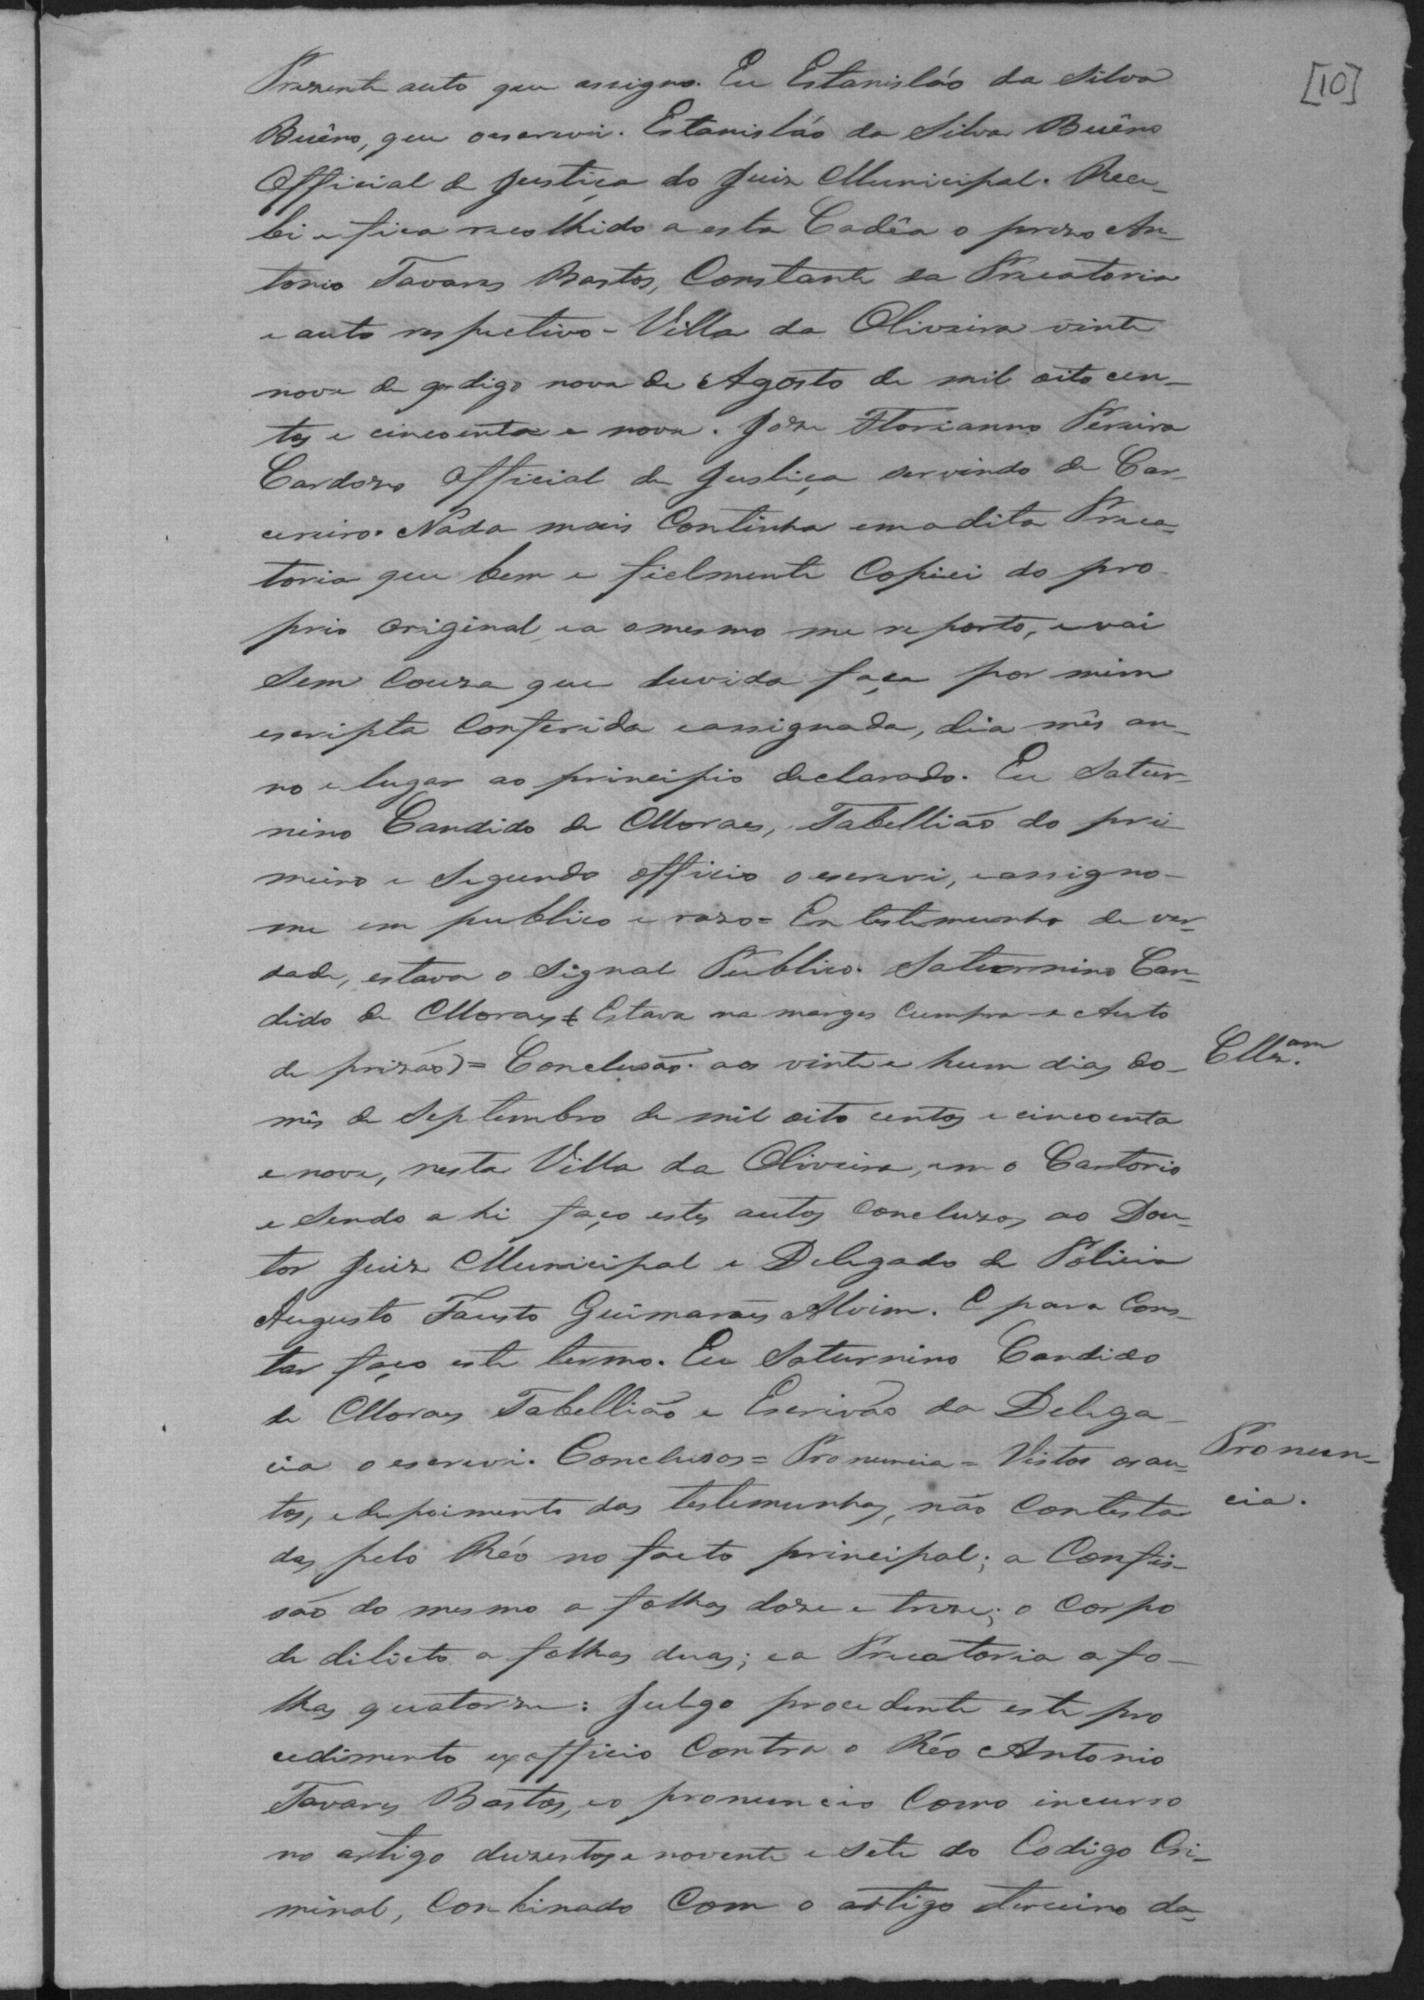 [10]
Prezente auto que assigno. Eu Estanisláo da Silva
Buêno, que o escrevi. Estanisláo da Silva Buêno
Official de Justiça do Juiz Municipal. Rece-
bi e fica recolhido a esta Cadêa o prezo An-
tonio Tavares Bastos, Constante da Precatoria
e auto respectivo - Villa da Oliveira vinte
nove de digo nove de Agosto de mil oito cen-
tos e cincoenta e nove. Joze Florianno Pereira
Cardozo Official de Justiça servindo de Car-
cereiro. Nada mais Continha em a dita Preca-
toria que bem e fielmente Copiei do pro-
prio original, e a o mesmo me reporto, e vai
sem couza que duvida faça por mim
escripta Conferida e assignada, dia mês an-
no e lugar ao principio declarado. Eu Satur-
nino Candido de Moraes, Tabellião do pri-
meiro e Segundo officio o escrevi, e assigno-
me em publico e razo = Em testemunho de ver-
dade, estava o Signal Publico. Saturnino Can-
dido de Moraes ( Estava na marges Cumpra-se Auto
de prizão) = Conclusão. aos vinte e hum dias do
Cllz.am
mês de Septembro de mil oito centos e cincoenta
e nove, nesta Villa da Oliveira, em o Cartorio
e sendo a hi faço estes autos Concluzos ao Dou-
tor Juiz Municipal e Delegado de Policia
Augusto Fausto Guimarães Alvim. E para Cons-
tar faço este termo. Eu Saturnino Candido
de Moraes Tabellião e Escrivão da Delega-
cia o escrevi. Conclusos = Pronuncia = Vistos os au-
Pronun-
cia.
tos, e depoimento das testemunhas, não Contesta
das pelo Réo no facto principal; a Confis-
são do mesmo a folhas doze e treze; o Corpo
de dilicto a folhas duas; e a Precatoria a fo-
lhas quatorze: Julgo procedente este pro
cedimento ex officio Contra o Réo Antonio
Tavares Bastos, e o pronuncio Como incurso
no artigo duzentos e novente e sete do Codigo Cri-
minal, Conbinado Com o artigo terceiro da-